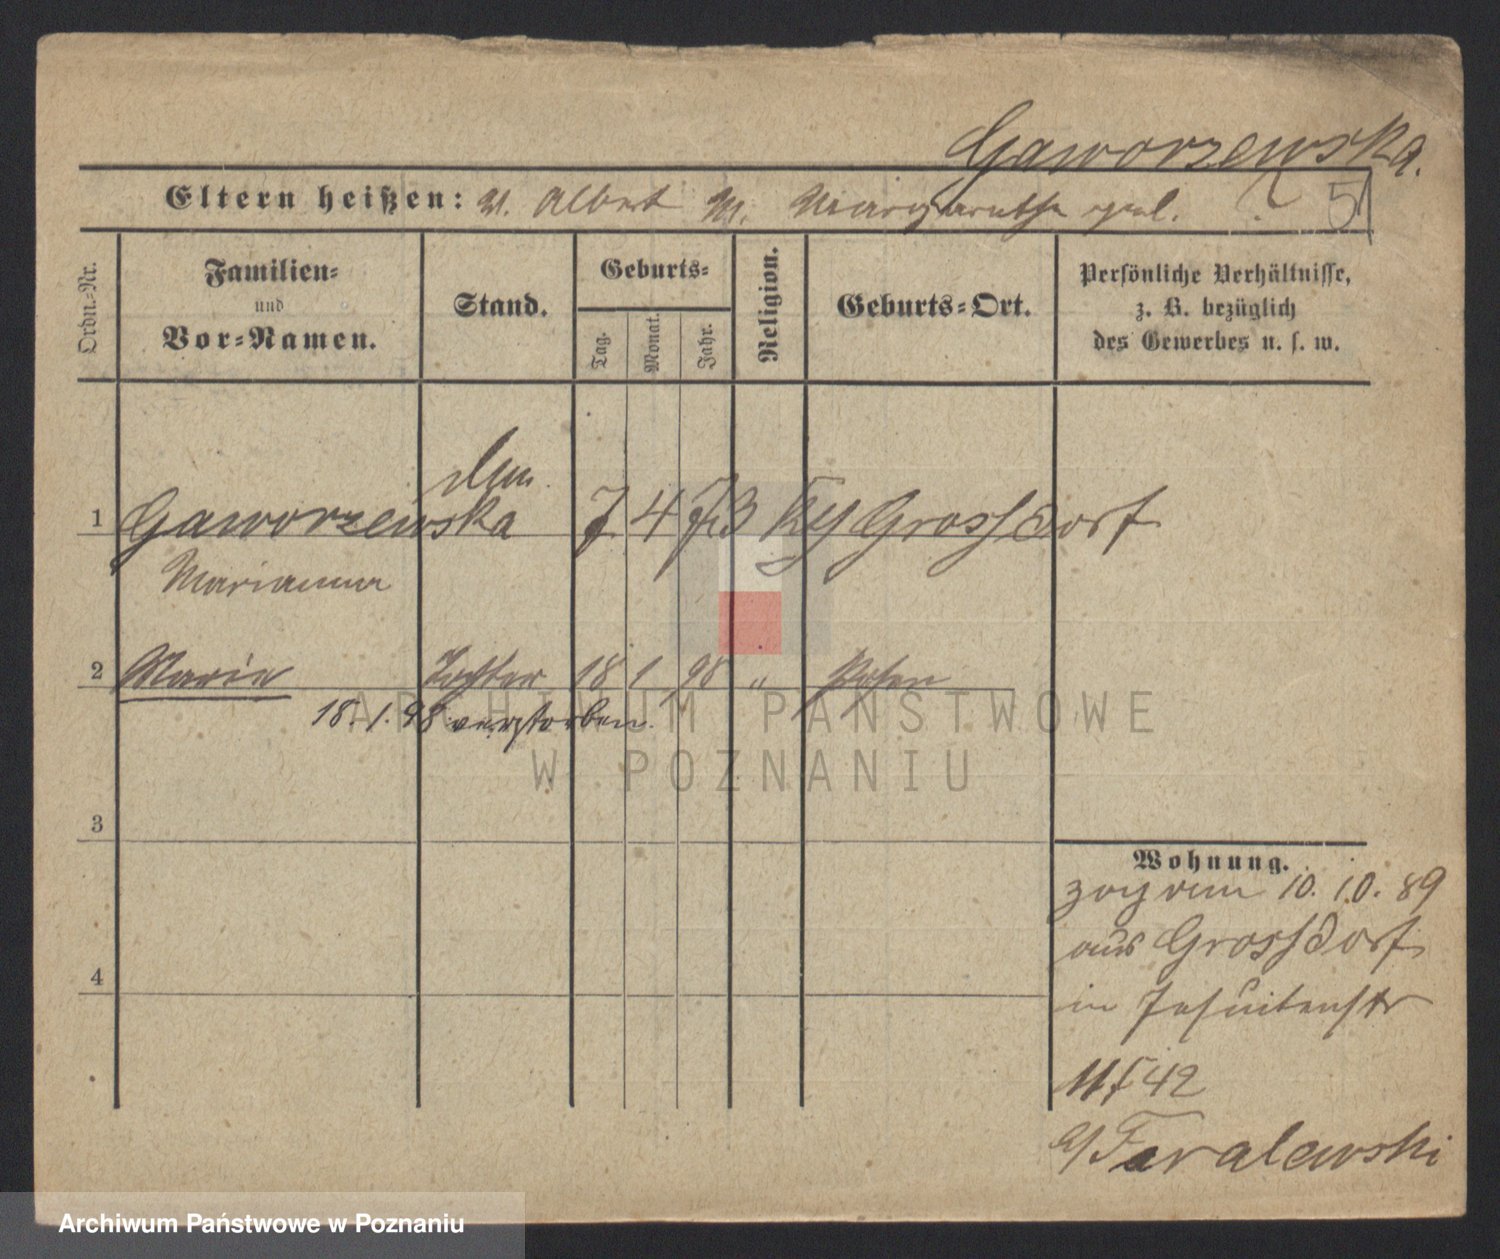 Gaworzewska.
Eltern heißen: V. Albert M. Margarethe gesl. 51
Ordn.-Nr.
Familien-
und
Vor-Namen.
Stand.
Geburts-
Tag.
Monat.
Jahr.
Religion.
Geburts-Ort.
Persönliche Verhältnisse,
z. B. bezüglich
des Gewerbes u. s. w.
1 Gaworzewska 7 4 73 Grossdorf
Marianna
2 Marie Tochter 18 1 98 " Posen
18. 1. 98 verstorben.
3
4
Wohnung.
zog am 10. 10. 89
aus Grossdorf
in Jesuitenstr
11 f 42
ARCHIWUM PAŃSTWOWE
W POZNANIU
Archiwum Państwowe w Poznaniu